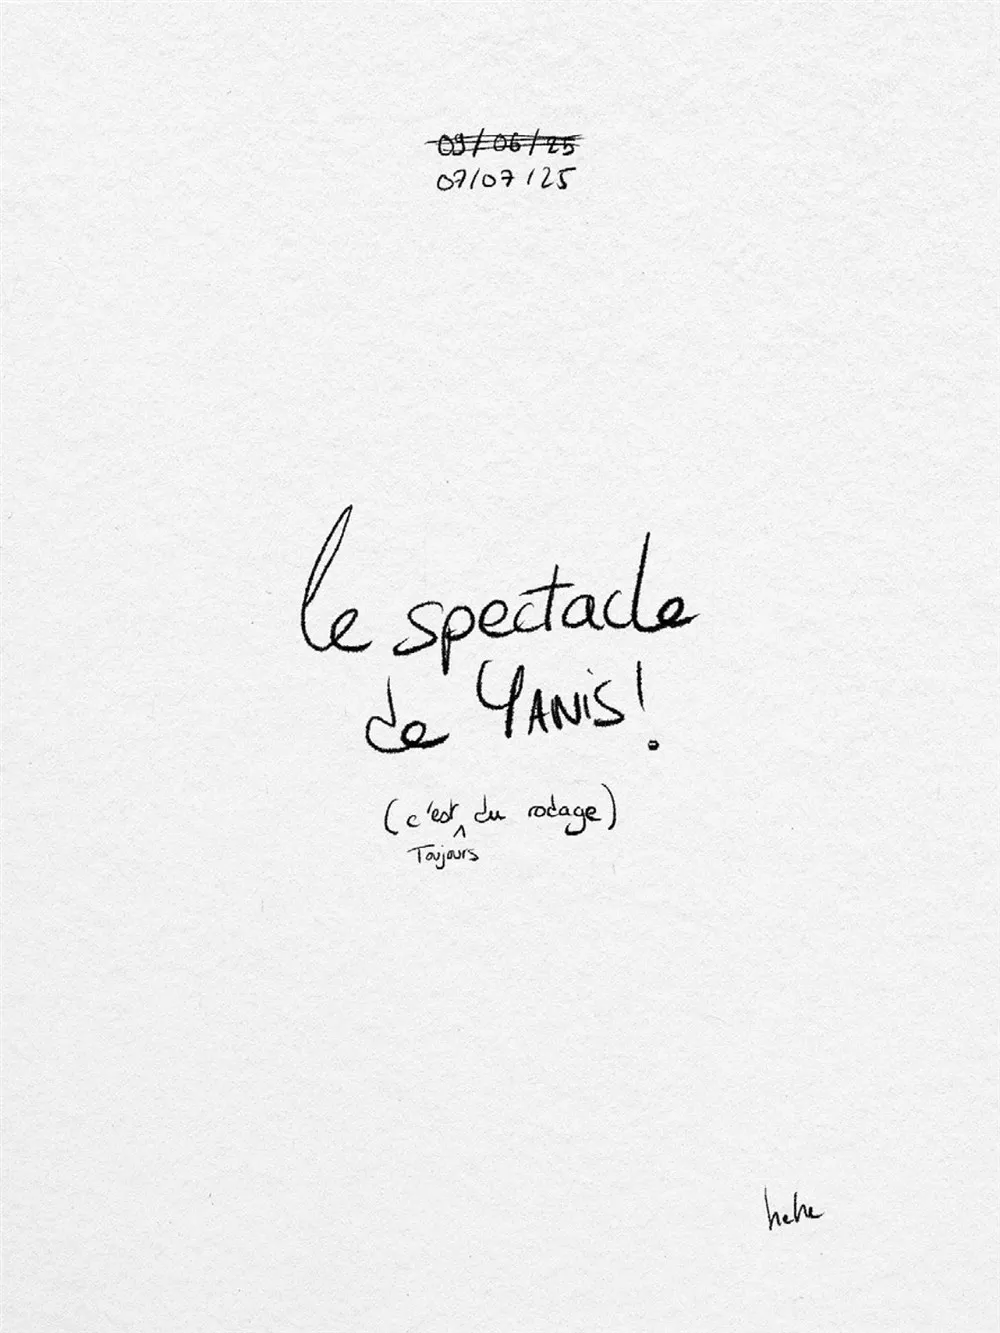 09/06/25
07/07/25
le spectacle
de YANiS!
(c'est du rodage)
^
Toujours
hehe